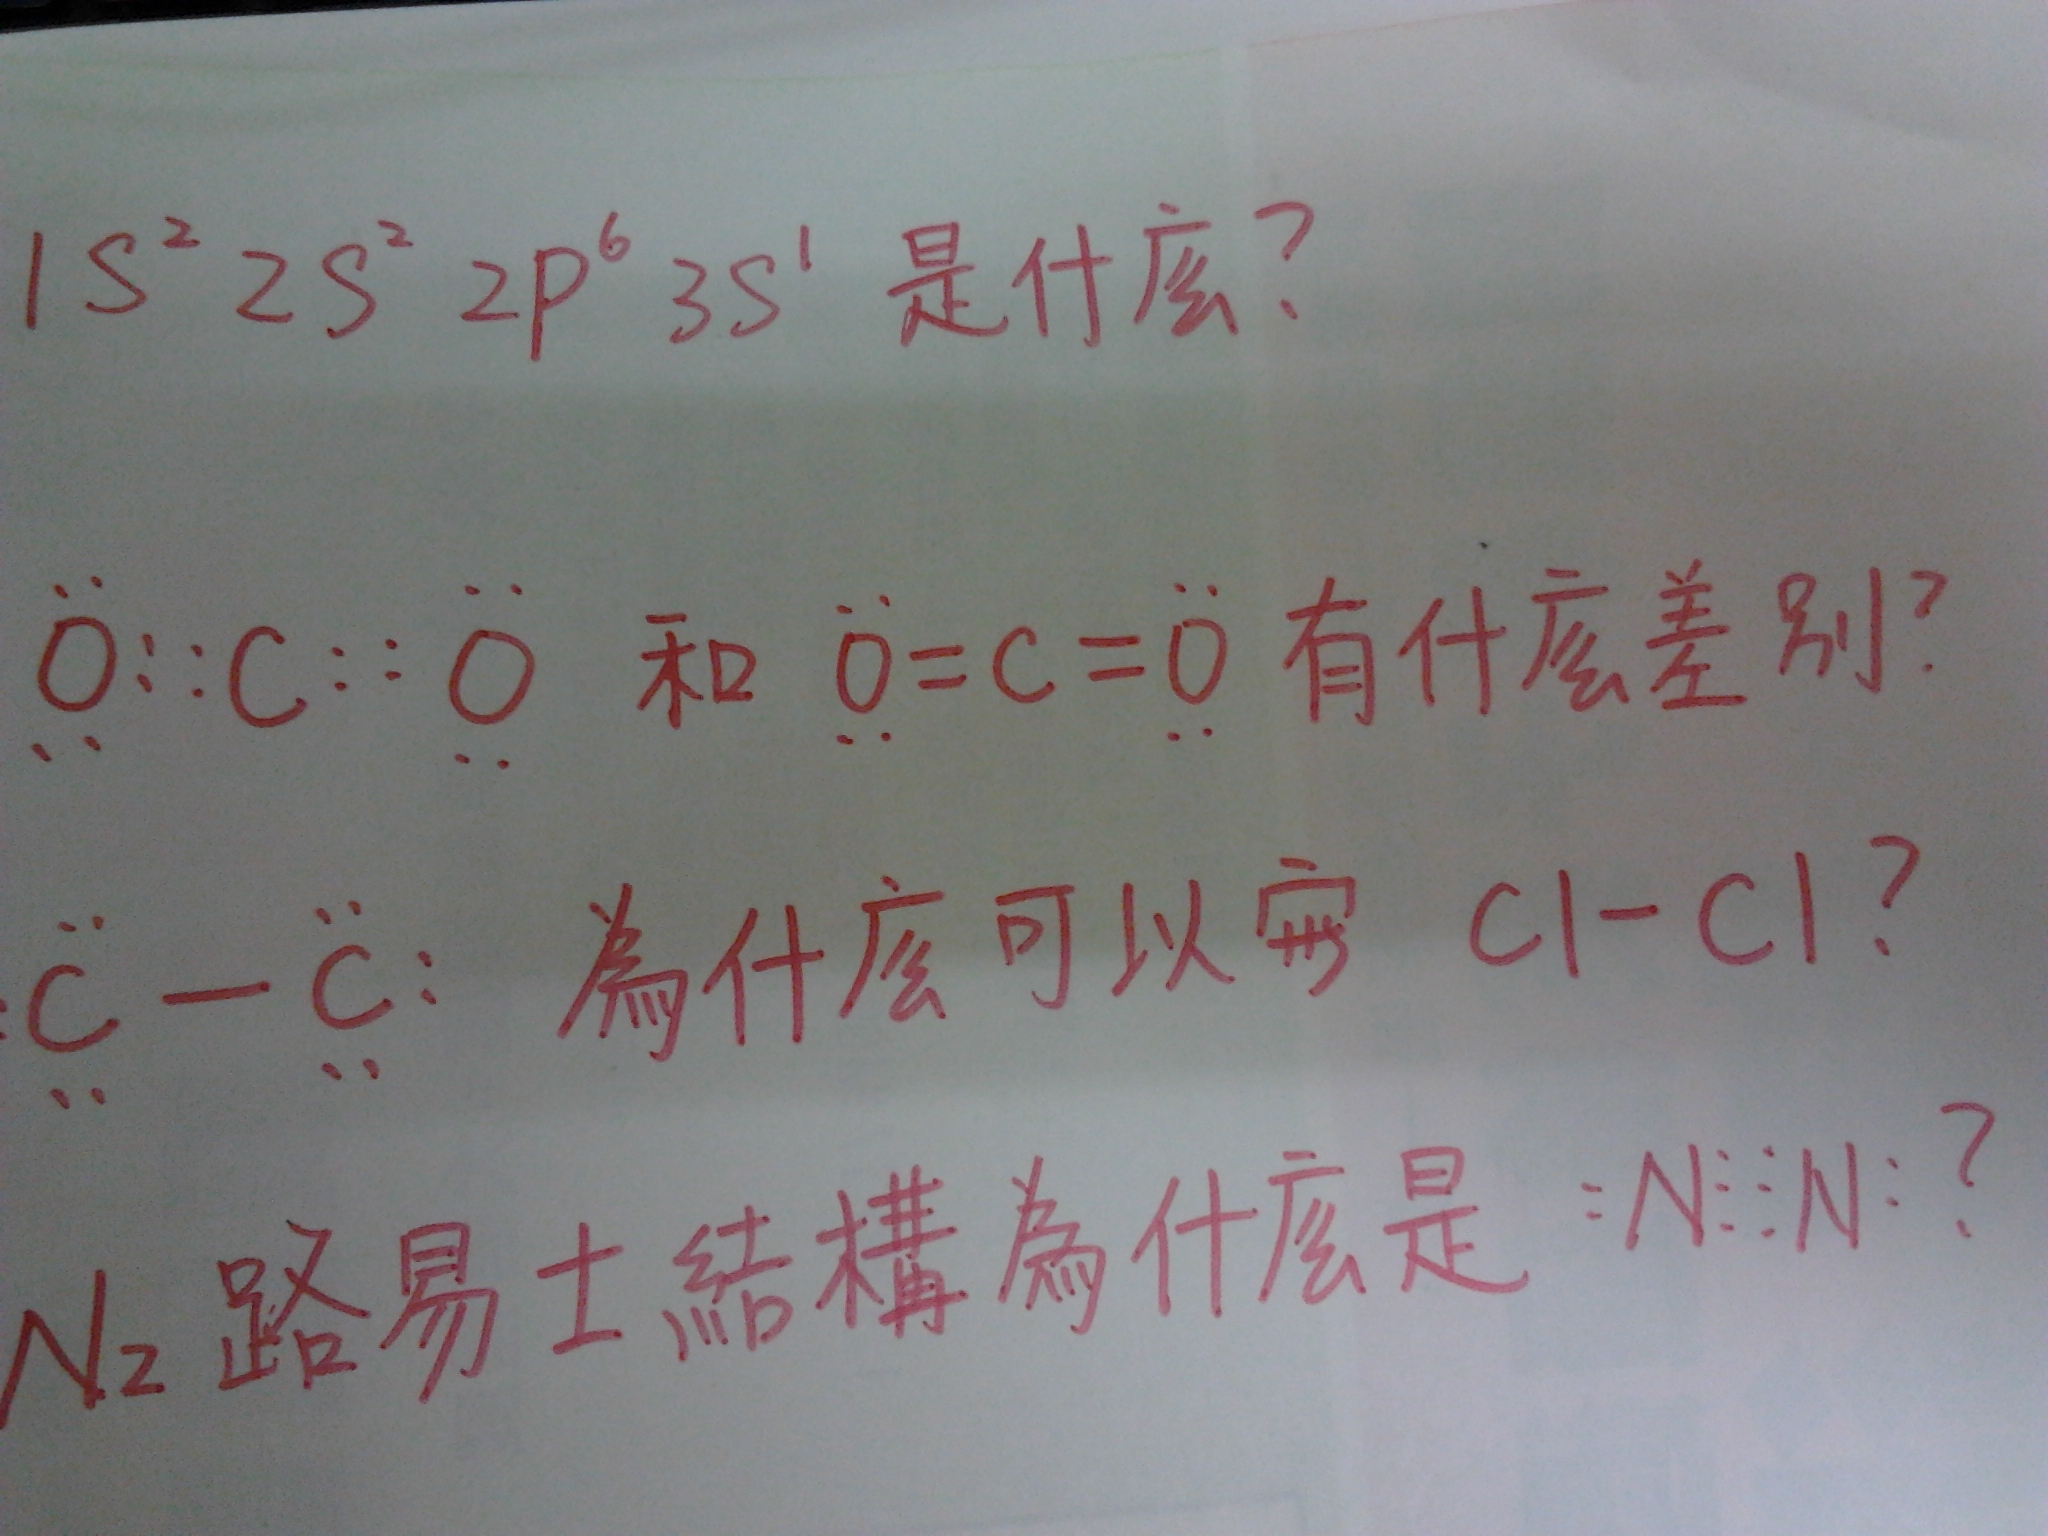 1S² 2S² 2P⁶ 3S¹ 是什庅?
Ö::C::Ö 和 Ö=C=Ö 有什庅差別?
:C̈–C̈: 為什庅可以 Cl–Cl?
N₂ 路易士結構為什庅是 :N⋮⋮N:?